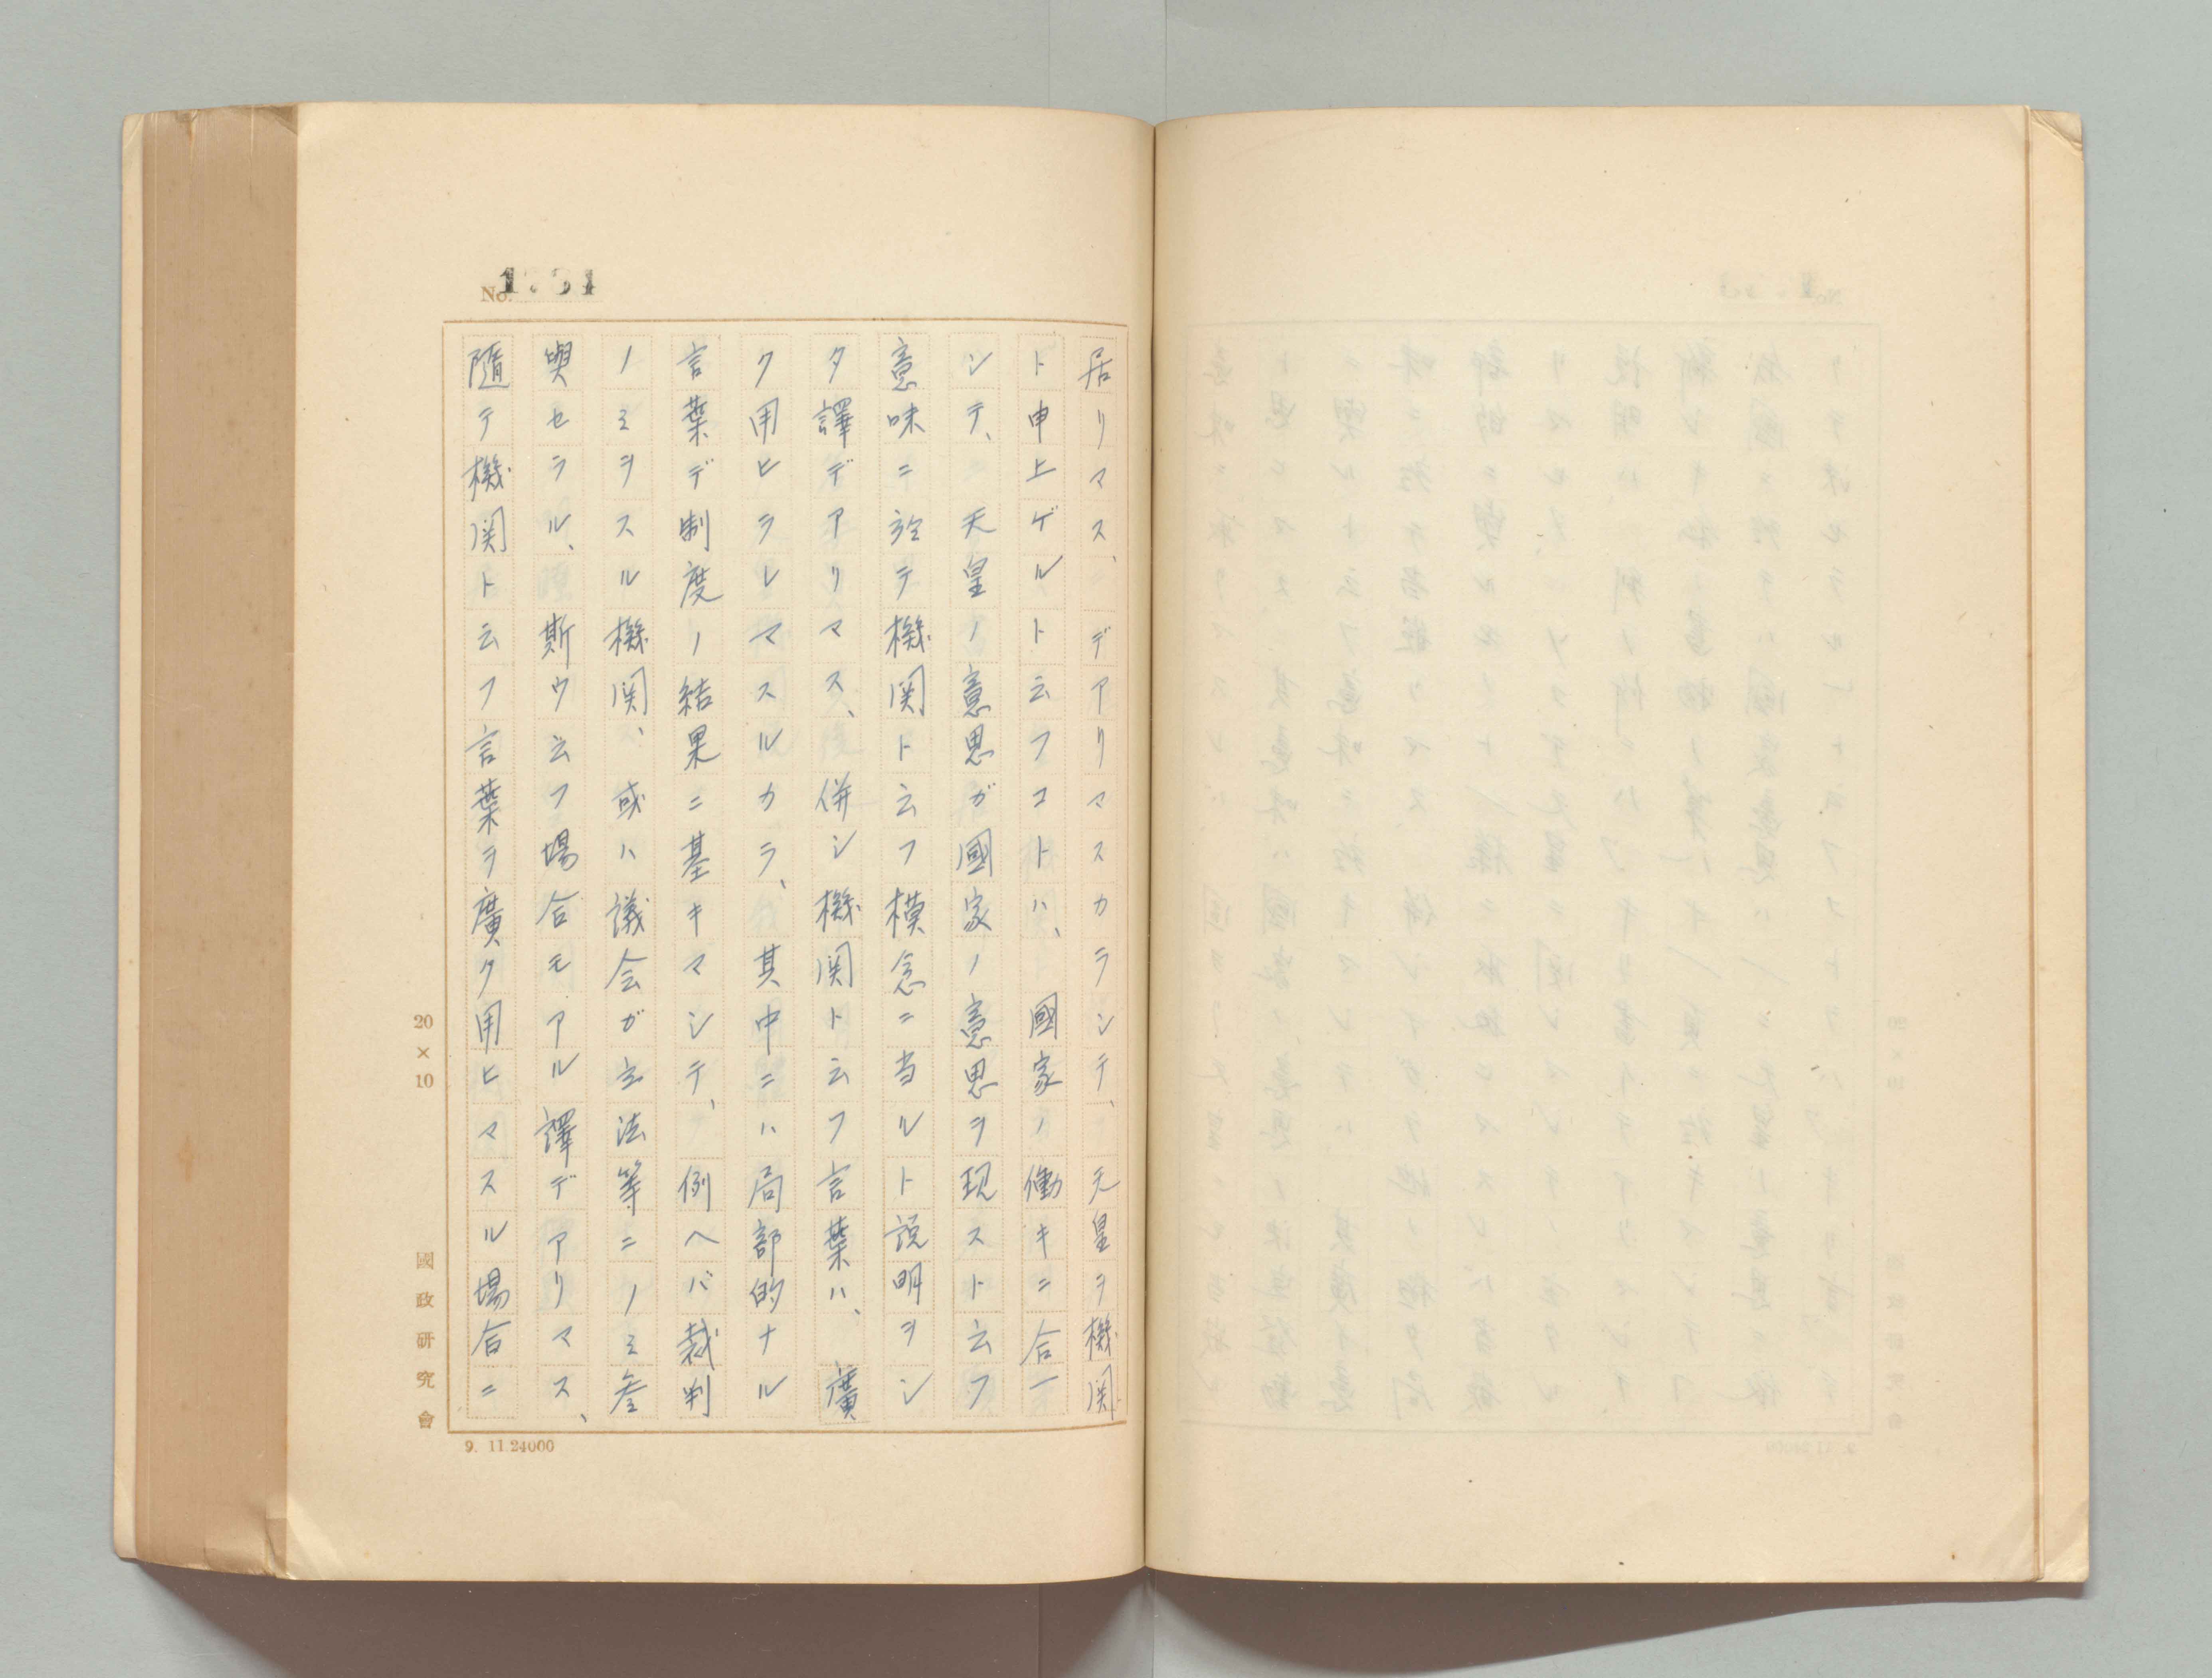 居リマス、デアリマスカラシテ、天皇ヲ機関
ト申上ゲルト云フコトハ、國家ノ働キニ合一
シテ、天皇ノ意思ガ國家ノ意思ヲ現スト云フ
意味ニ於テ機関ト云フ模念ニ当ルト説明ヲシ
タ譯デアリマス、併シ機関ト云フ言葉ハ、廣
ク用ヒラレマスルカラ、其中ニハ局部的ナル
言葉デ制度ノ結果ニ基キマシテ、例ヘバ裁判
ノミヲスル機関、或ハ議会ガ立法等ニノミ参
喫セラル、斯ウ云フ場合モアル譯デアリマス、
隨テ機関ト云フ言葉ヲ廣ク用ヒマスル場合ニ
No.
20×10
國政研究會
9. 11.24000